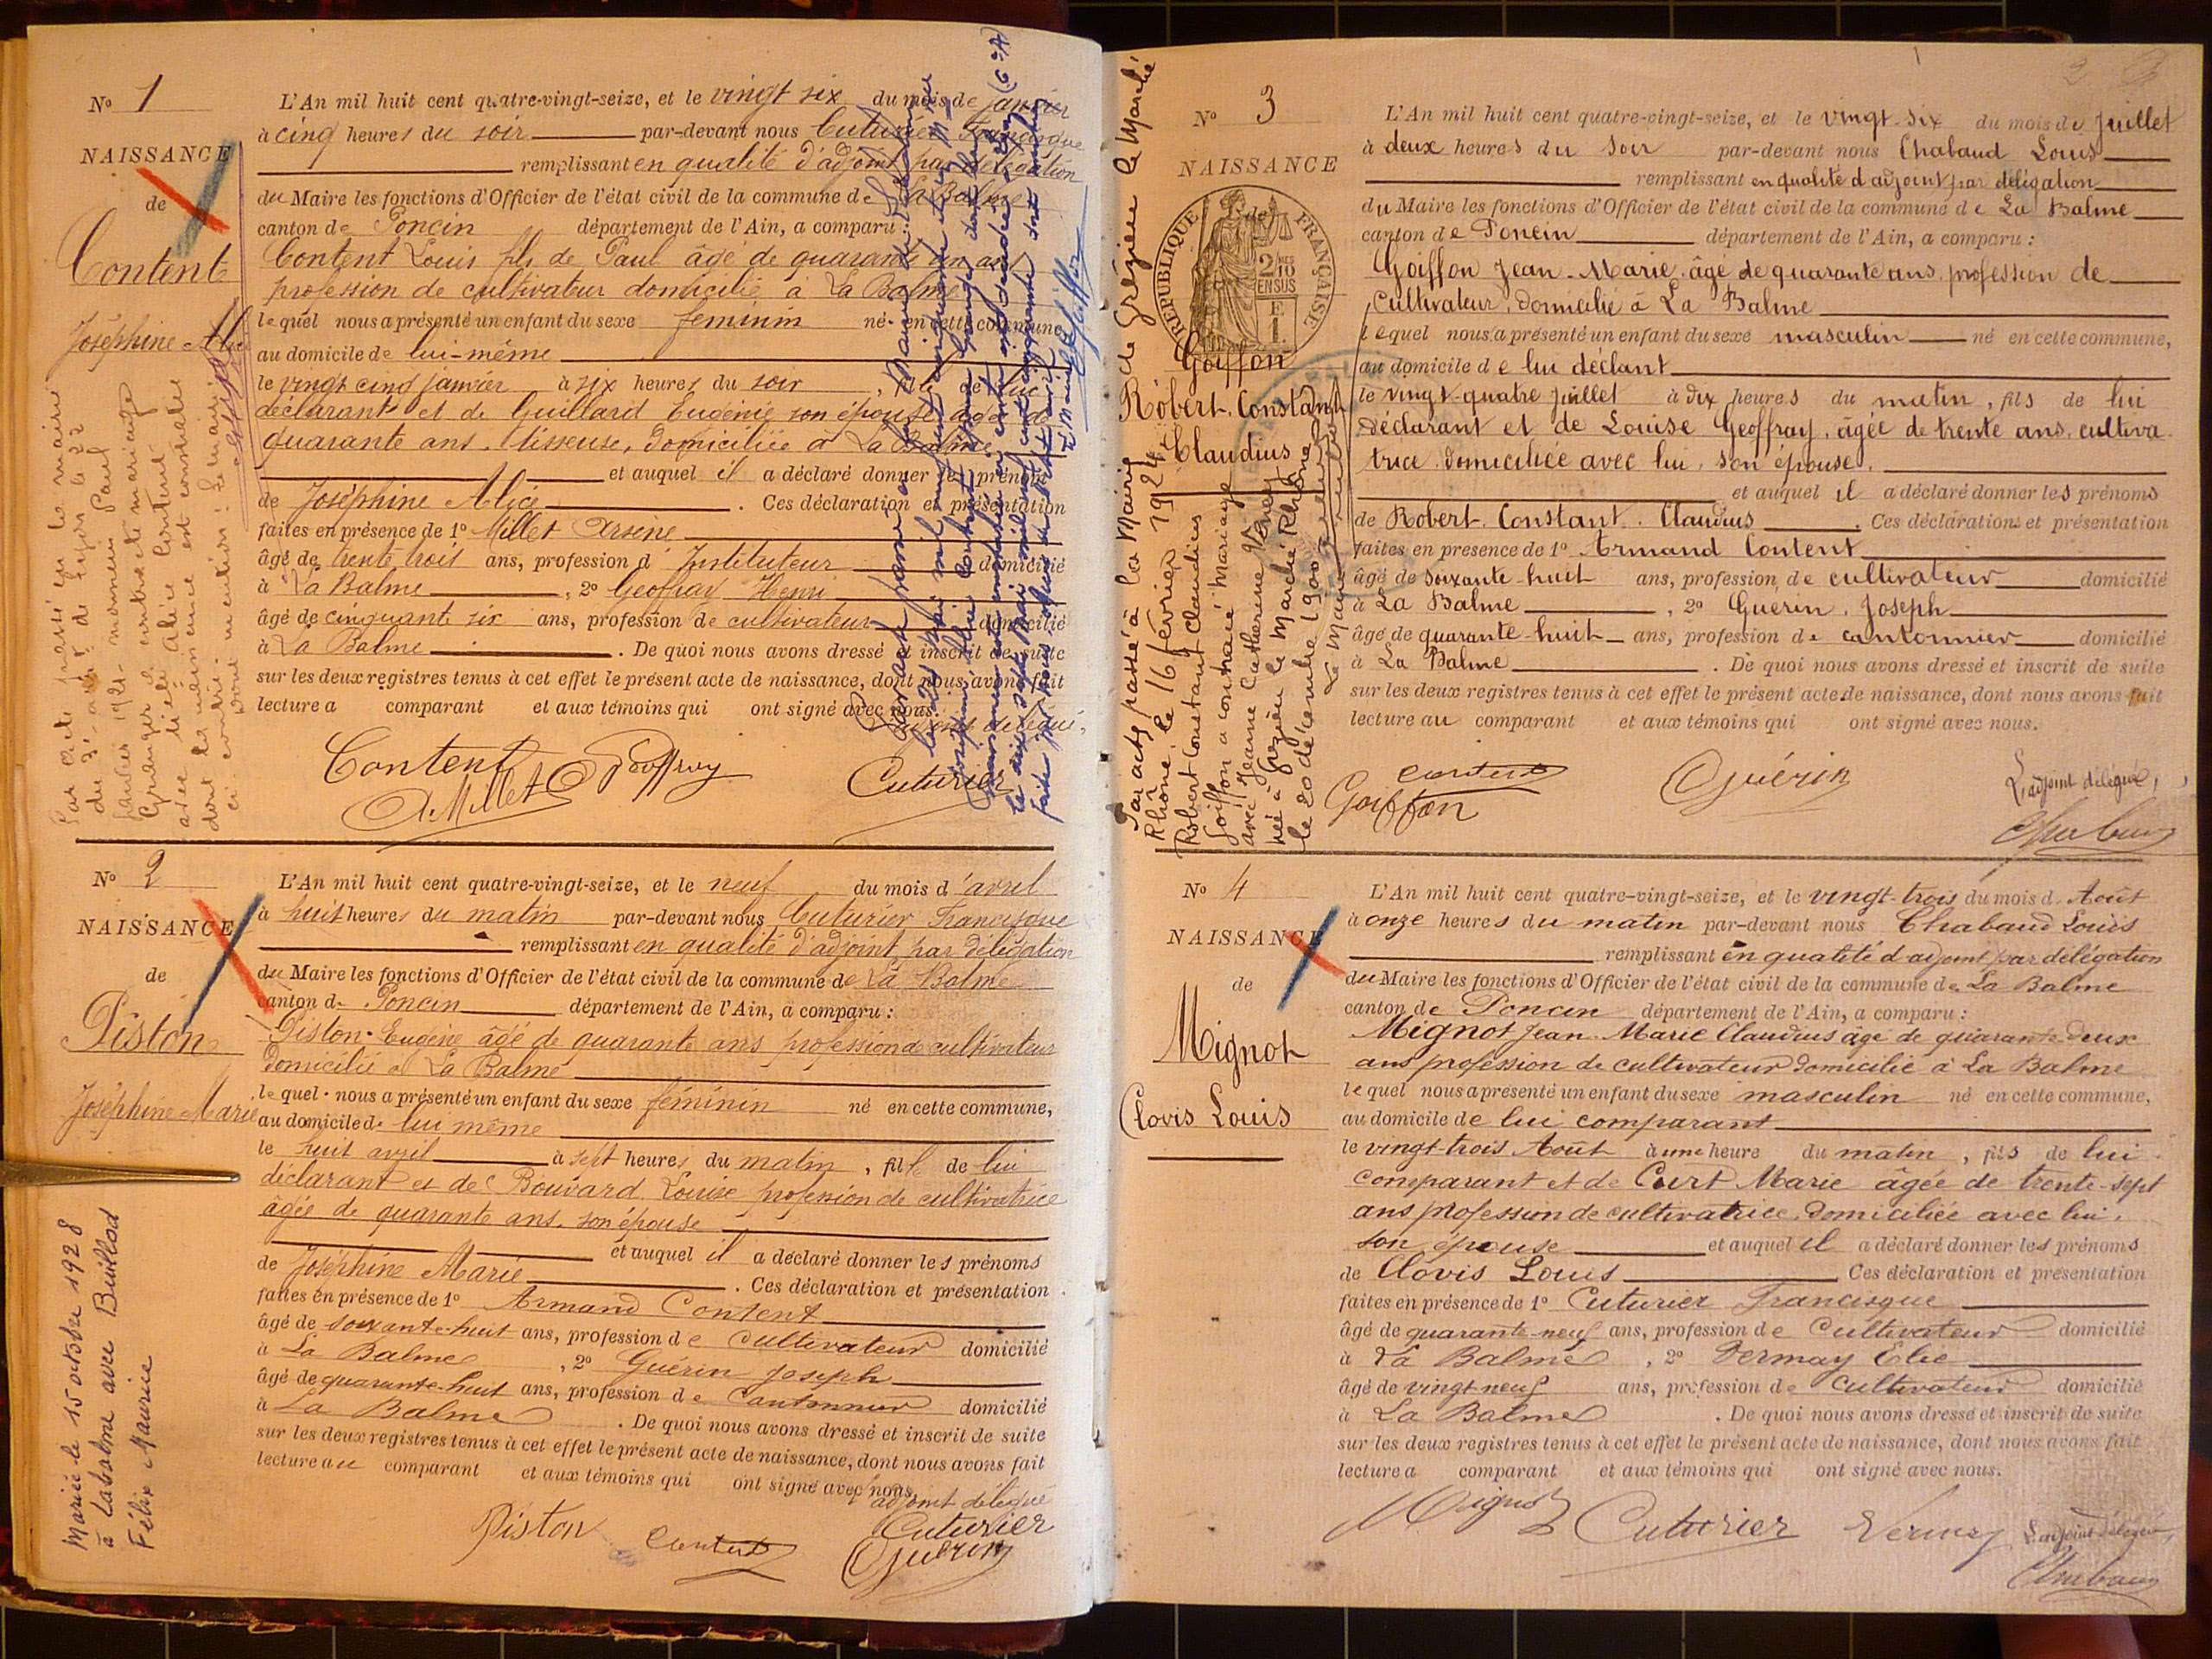 No 1
NAISSANCE
de
Content
Joséphine Alice
L'An mil huit cent quatre-vingt-seize, et le vingt six du mois de janvier
à cinq heures du soir par-devant nous Cuturier Francisque
remplissant en qualité d'adjoint par délégation
du Maire les fonctions d'Officier de l'état civil de la commune de La Balme
canton de Poncin département de l'Ain, a comparu :
Content Louis fils de Paul âgé de quarante un ans
profession de cultivateur domicilié à La Balme
lequel nous a présenté un enfant du sexe féminin né en cette commune,
au domicile de lui-même
le vingt cinq janvier à six heures du soir, fille de lui
déclarant et de Guillard Eugénie son épouse âgée de
quarante ans, tisseuse, domiciliée à La Balme
et auquel il a déclaré donner les prénoms
de Joséphine Alice. Ces déclaration et présentation
faites en présence de 1º Millet Arsène
âgé de trente trois ans, profession d'Instituteur domicilié
à La Balme, 2º Geoffray Henri
âgé de cinquante six ans, profession de cultivateur domicilié
à La Balme. De quoi nous avons dressé et inscrit de suite
sur les deux registres tenus à cet effet le présent acte de naissance, dont nous avons fait
lecture a comparant et aux témoins qui ont signé avec nous.
Content
A. Millet Geoffray Cuturier
No 2
NAISSANCE
de
Piston
Joséphine Marie
Mariée le 15 octobre 1928
à Labalme avec Buillod
Félix Maurice
L'An mil huit cent quatre-vingt-seize, et le neuf du mois d'avril
à huit heures du matin par-devant nous Cuturier Francisque
remplissant en qualité d'adjoint par délégation
du Maire les fonctions d'Officier de l'état civil de la commune de La Balme
canton de Poncin département de l'Ain, a comparu :
Piston Eugène âgé de quarante ans profession de cultivateur
domicilié à La Balme
lequel nous a présenté un enfant du sexe féminin né en cette commune,
au domicile de lui même
le huit avril à sept heures du matin, fille de lui
déclarant et de Bouvard Louise profession de cultivatrice
âgée de quarante ans, son épouse
et auquel il a déclaré donner les prénoms
de Joséphine Marie. Ces déclaration et présentation
faites en présence de 1º Armand Content
âgé de soixante-huit ans, profession de cultivateur domicilié
à La Balme, 2º Guérin Joseph
âgé de quarante-huit ans, profession de Cantonnier domicilié
à La Balme. De quoi nous avons dressé et inscrit de suite
sur les deux registres tenus à cet effet le présent acte de naissance, dont nous avons fait
lecture au comparant et aux témoins qui ont signé avec nous.
adjoint délégué
Piston Content Cuturier
Guérin
No 3
NAISSANCE
de
RÉPUBLIQUE FRANÇAISE
2 10
EN SUS
Goiffon
Robert, Constant
Claudius
Par acte passé à la Mairie de Grézieu le Marché
Rhône, le 16 février 1924
Robert Constant Claudius
Goiffon a contracté mariage
avec Jeanne Catherine
née à Grézieu le Marché Rhône
le 20 décembre 1900
L'An mil huit cent quatre-vingt-seize, et le vingt-six du mois de Juillet
à deux heures du soir par-devant nous Chabaud Louis
remplissant en qualité d'adjoint par délégation
du Maire les fonctions d'Officier de l'état civil de la commune de La Balme
canton de Poncin département de l'Ain, a comparu :
Goiffon Jean-Marie, âgé de quarante ans, profession de
cultivateur, domicilié à La Balme
lequel nous a présenté un enfant du sexe masculin né en cette commune,
au domicile de lui déclant
le vingt-quatre juillet à dix heures du matin, fils de lui
déclarant et de Louise Geoffray, âgée de trente ans, cultiva
trice domiciliée avec lui, son épouse,
et auquel il a déclaré donner les prénoms
de Robert, Constant, Claudius. Ces déclarations et présentation
faites en presence de 1º Armand Content
âgé de soixante-huit ans, profession de cultivateur domicilié
à La Balme, 2º Guérin, Joseph
âgé de quarante-huit ans, profession de cantonnier domicilié
à La Balme. De quoi nous avons dressé et inscrit de suite
sur les deux registres tenus à cet effet le présent acte de naissance, dont nous avons fait
lecture au comparant et aux témoins qui ont signé avec nous.
Content Guérin L'adjoint délégué,
Goiffon Chabaud
No 4
NAISSANCE
de
Mignot
Clovis Louis
L'An mil huit cent quatre-vingt-seize, et le vingt-trois du mois d'Août
à onze heures du matin par-devant nous Chabaud Louis
remplissant en qualité d'adjoint par délégation
du Maire les fonctions d'Officier de l'état civil de la commune de La Balme
canton de Poncin département de l'Ain, a comparu :
Mignot Jean-Marie Claudius âgé de quarante-deux
ans profession de cultivateur domicilié à La Balme
lequel nous a présenté un enfant du sexe masculin né en cette commune,
au domicile de lui comparant
le vingt-trois Août à une heure du matin, fils de lui
comparant et de Curt Marie âgée de trente-sept
ans profession de cultivatrice, domiciliée avec lui,
son épouse et auquel il a déclaré donner les prénoms
de Clovis Louis Ces déclaration et présentation
faites en présence de 1º Cuturier Francisque
âgé de quarante-neuf ans, profession de cultivateur domicilié
à La Balme, 2º Vermay Elie
âgé de vingt-neuf ans, profession de cultivateur domicilié
à La Balme. De quoi nous avons dressé et inscrit de suite
sur les deux registres tenus à cet effet le présent acte de naissance, dont nous avons fait
lecture a comparant et aux témoins qui ont signé avec nous.
Mignot Cuturier Vermay L'adjoint délégué,
Chabaud